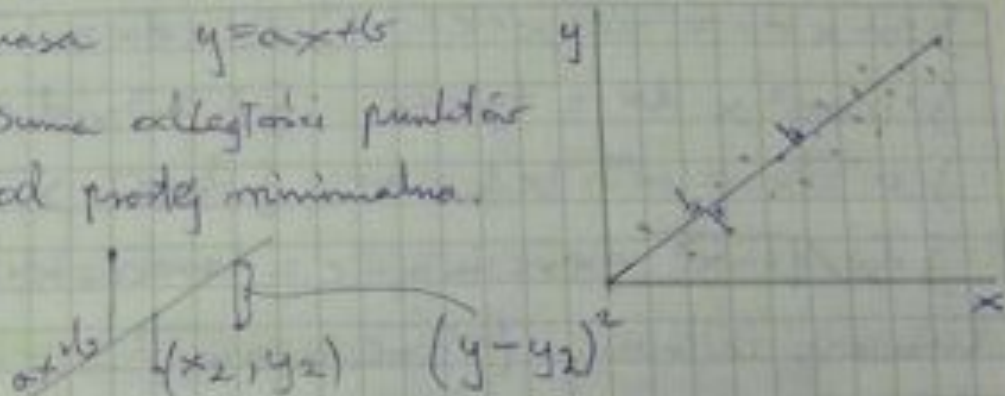 y=ax+b
Suma odległości punktów
od prostej minimalna.
y
x
ax+b
(x₂, y₂)
(y-y₂)²